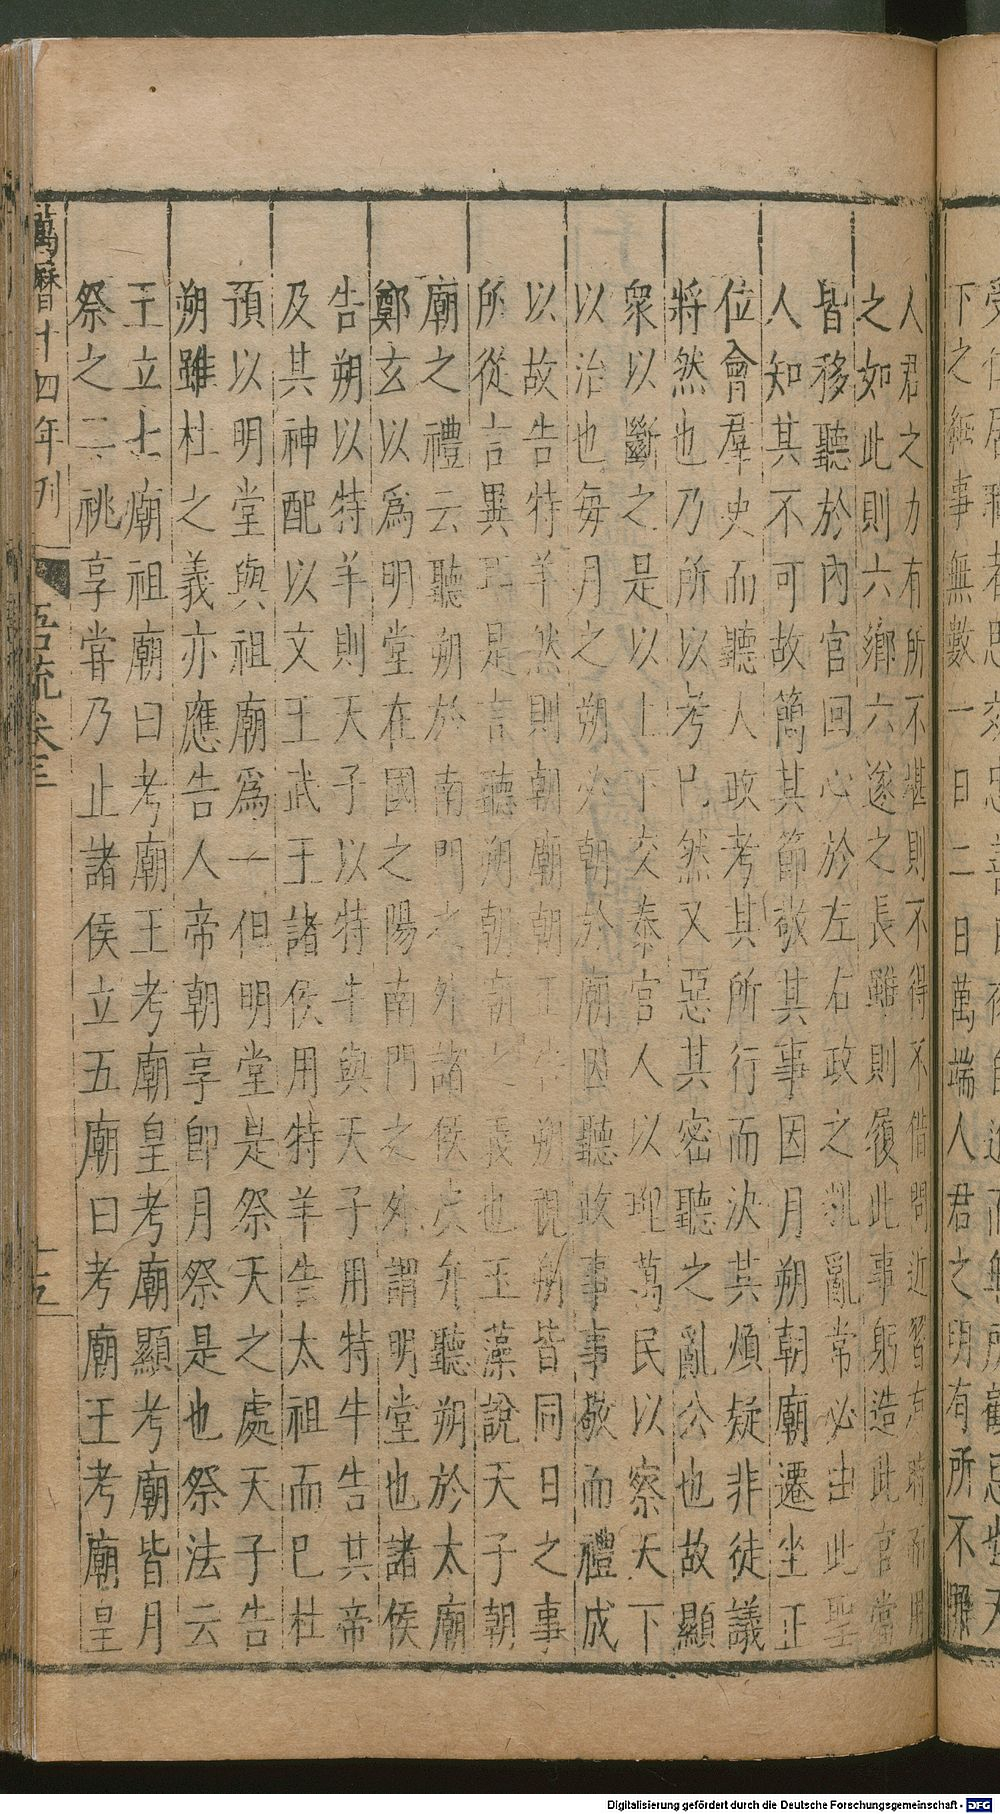 下之細事無數一日二日萬端人君之明有所不照
人君之力有所不堪則不得不借問近習有時而用
之如此則六鄉六遂之長雖則履此事躬造此官當
皆移聽於內官回心於左右政之粃亂常必由此聖
人知其不可故簡其節敬其事因月朔朝廟遷坐正
位會羣吏而聽人政考其所行而決其煩疑非徒議
將然也乃所以考已然又惡其密聽之亂公也故顯
眾以斷之是以上下交泰官人以理萬民以察天下
以治也每月之朔必朝於廟因聽政事事敬而禮成
以故告特羊然則朝廟朝正告朔視朔皆同日之事
所從言異耳是言聽朔朝廟之義也玉藻說天子朝
廟之禮云聽朔於南門之外諸侯皮弁聽朔於太廟
鄭玄以為明堂在國之陽南門之外謂明堂也諸侯
告朔以特羊則天子以特牛與天子用特牛告其帝
及其神配以文王武王諸侯用特羊告太祖而已杜
預以明堂與祖廟為一但明堂是祭天之處天子告
朔雖杜之義亦應告人帝朝享即月祭是也祭法云
王立七廟祖廟曰考廟王考廟皇考廟顯考廟皆月
祭之二祧享嘗乃止諸侯立五廟曰考廟王考廟皇
萬曆十四年刊
吾疏卷三
十五
Digitalisierung gefördert durch die Deutsche Forschungsgemeinschaft - DFG